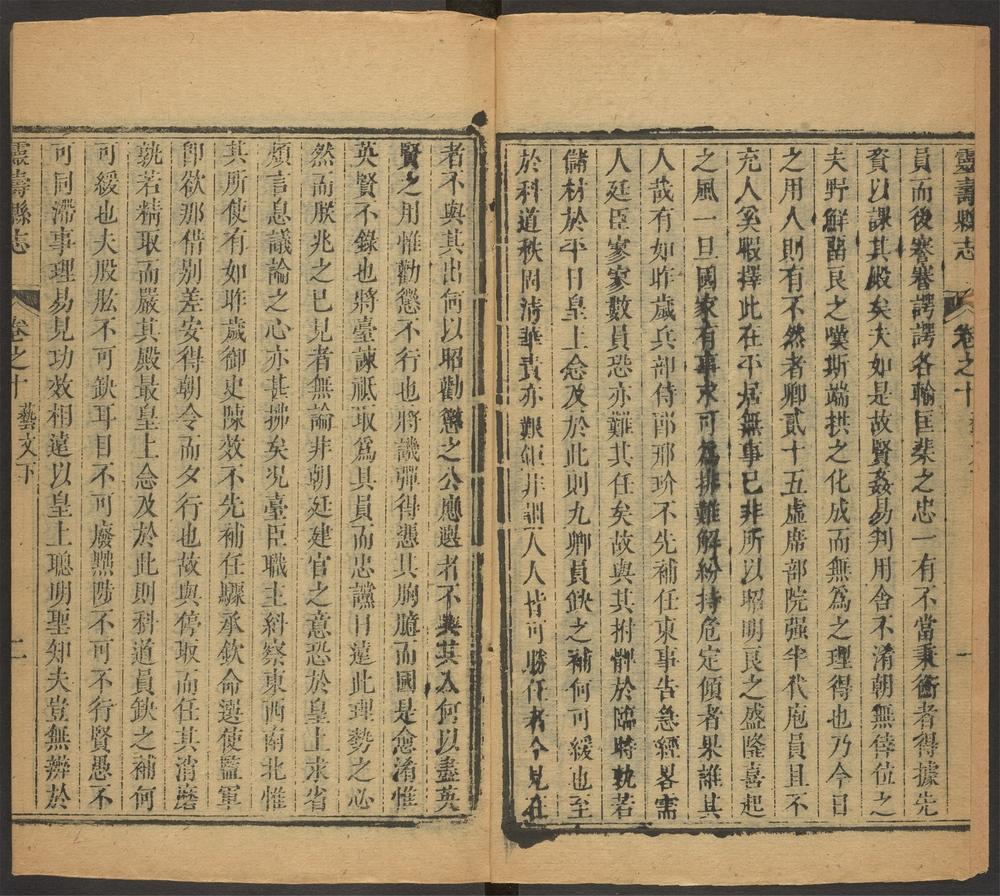 靈壽縣志 卷之十
員而後謇謇諤諤各輸匡棐之忠一有不當秉衡者得據先
資以課其殿矣夫如是故賢姦易判用舍不淆朝無倖位之
夫野鮮畱良之嘆斯端拱之化成而無爲之理得也乃今日
之用人則有不然者卿貳十五虛席部院强半代庖員且不
充人奚暇擇此在平居無事已非所以昭明良之盛隆喜起
之風一旦國家有事求可爲排難解紛持危定傾者果誰其
人哉有如昨歲兵部侍郎那玠不先補任東事告急經畧需
人廷臣寥寥數員恐亦難其任矣故與其拊髀於臨時孰若
儲材於平日皇上念及於此則九卿員缺之補何可緩也至
於科道秩間淸華責亦艱鉅非謂人人皆可勝任者今見在
者不與其出何以昭勸懲之公應選者不與其入何以盡英
賢之用惟勸懲不行也將譏彈得憑其胸臆而國是愈淆惟
英賢不錄也將臺諫祗取爲具員而忠讜日遠此理勢之必
然而朕兆之已見者無論非朝廷建官之意恐於皇上求省
煩言息議論之心亦甚拂矣况臺臣職主糾察東西南北惟
其所使有如昨歲御史陳效不先補任驟承欽命選使監軍
卽欲那借別差安得朝令而夕行也故與俟取而任其消磨
孰若精取而嚴其殿最皇上念及於此則科道員缺之補何
可緩也夫股肱不可缺耳目不可廢黜陟不可不行賢愚不
可同滯事理易見功效相遠以皇上聰明聖知夫豈無辨於
靈壽縣志 卷之十 藝文下 二